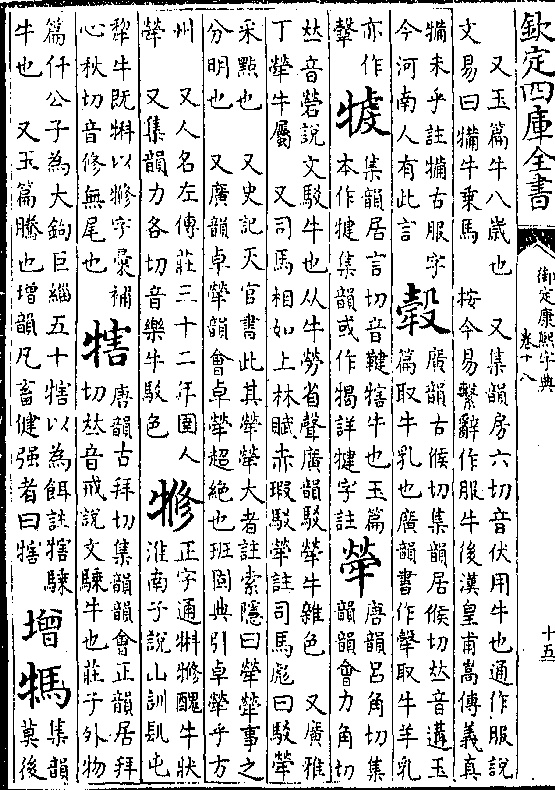 欽定四庫全書
御定康熙字典
卷十八
十五
又玉篇牛八歲也 又集韻房六切音伏用牛也通作服說
文易曰犕牛乗馬 按今易繫辭作服牛後漢皇甫嵩傳義真
犕未乎註犕古服字
今河南人有此言
廣韻古候切集韻居候切𠀤音遘玉
篇取牛乳也廣韻書作㨌取牛羊乳
亦作
聲
集韻居言切音鞬犗牛也玉篇
本作犍集韻或作犗詳犍字註
犖
唐韻呂角切集
韻韻會力角切
𠀤音硌說文駁牛也从牛勞省聲廣韻駁犖牛雜色 又廣雅
丁犖牛屬 又司馬相如上林賦赤瑕駁犖註司馬彪曰駁犖
采點也 又史記天官書此其犖犖大者註索隱曰犖犖事之
分明也 又廣韻卓犖韻會卓犖超絶也班固典引卓犖乎方
州 又人名左傳莊三十二年圉人
犖 又集韻力各切音樂牛駁色
㹋
正字通㸹㹋醜牛狀
淮南子說山訓髡屯
犂牛既㸹以㹋字彙補
心秋切音修無尾也
犗
唐韻古拜切集韻韻會正韻居拜
切𠀤音戒說文騬牛也莊子外物
篇任公子為大鉤巨緇五十犗以為餌註犗騬
牛也 又玉篇騰也增韻凡畜健强者曰犗
增
𤚩
集韻
莫後